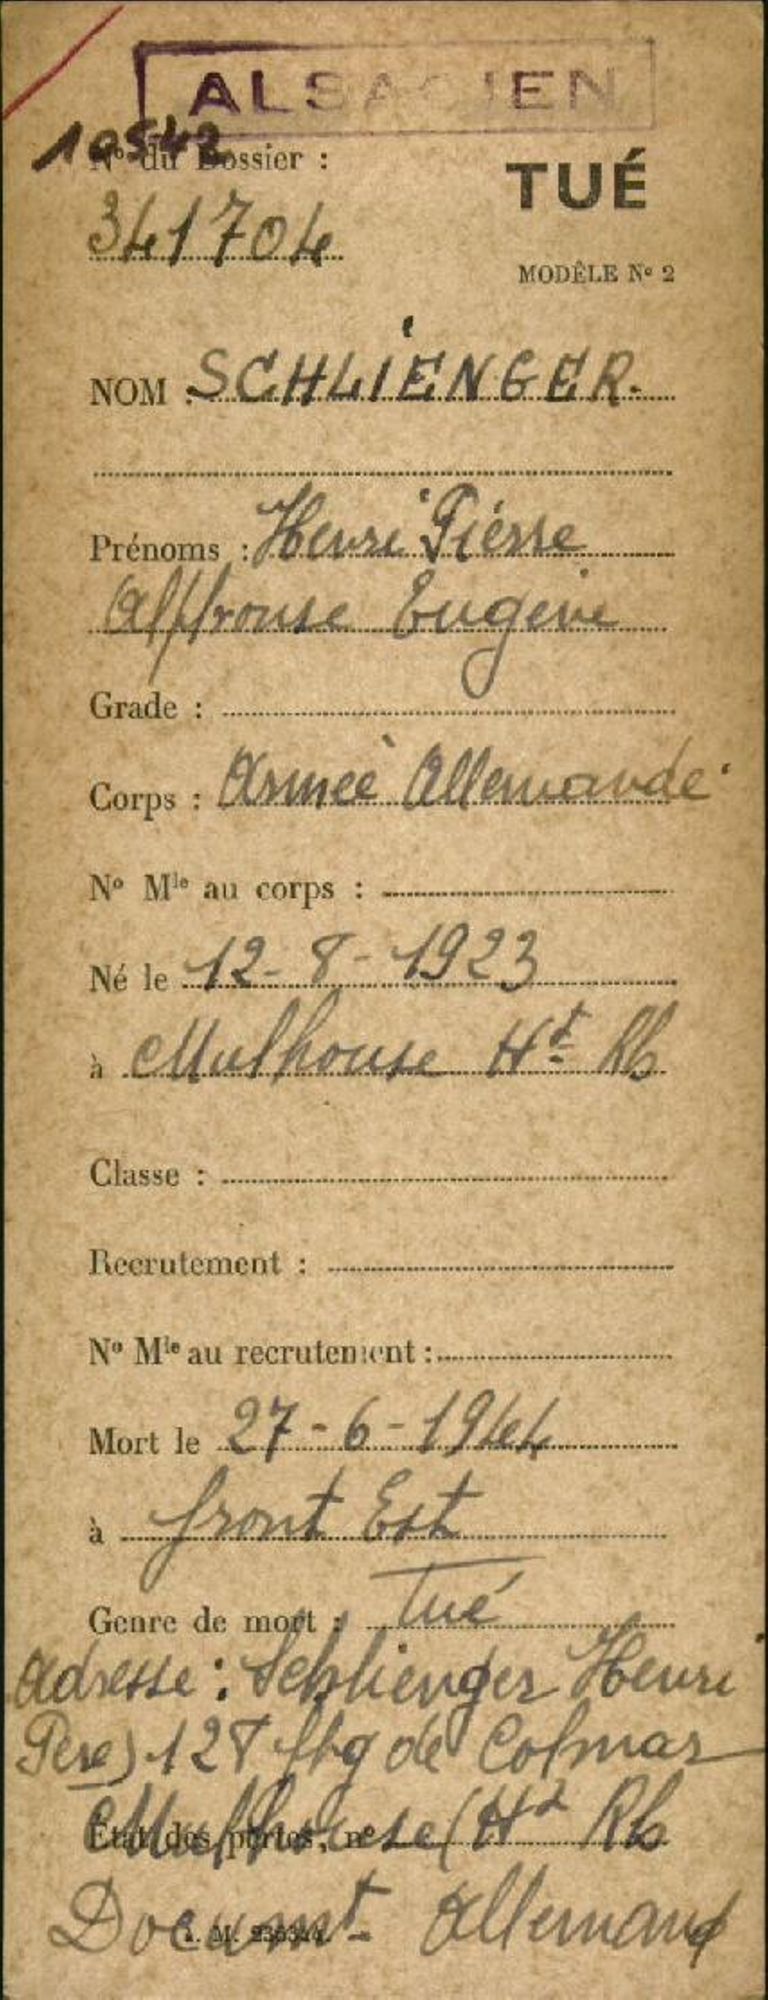 ALSACIEN
10542
N° du Dossier :
341704
TUÉ
MODÈLE N° 2
NOM : SCHLIENGER.
Prénoms : Henri Pierre
Alphonse Eugène
Grade :
Corps : Armée Allemande
N° Mle au corps :
Né le 12-8-1923
à Mulhouse Ht Rh
Classe :
Recrutement :
N° Mle au recrutement :
Mort le 27-6-1944
à front Est
Genre de mort : Tué
Adresse : Schlienger Henri
Père) 128 fbg de Colmar
Mulhouse (Ht Rh
État des pertes, n°
Documt - Allemand